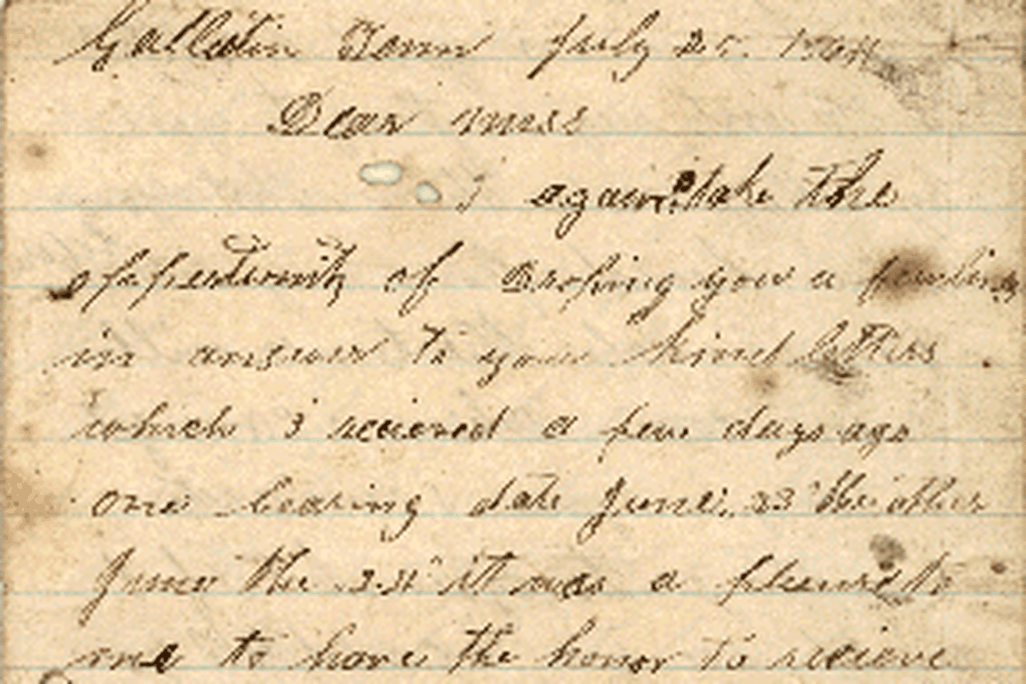 Gallatin Tenn July 25.
Dear miss
I again take the
oppertunity of droping you a few lines
in answer to your kind letters
which i recieved a few days ago
one bearing date June. 23 the other
June the it was a pleasure to
me to have the honor to recieve